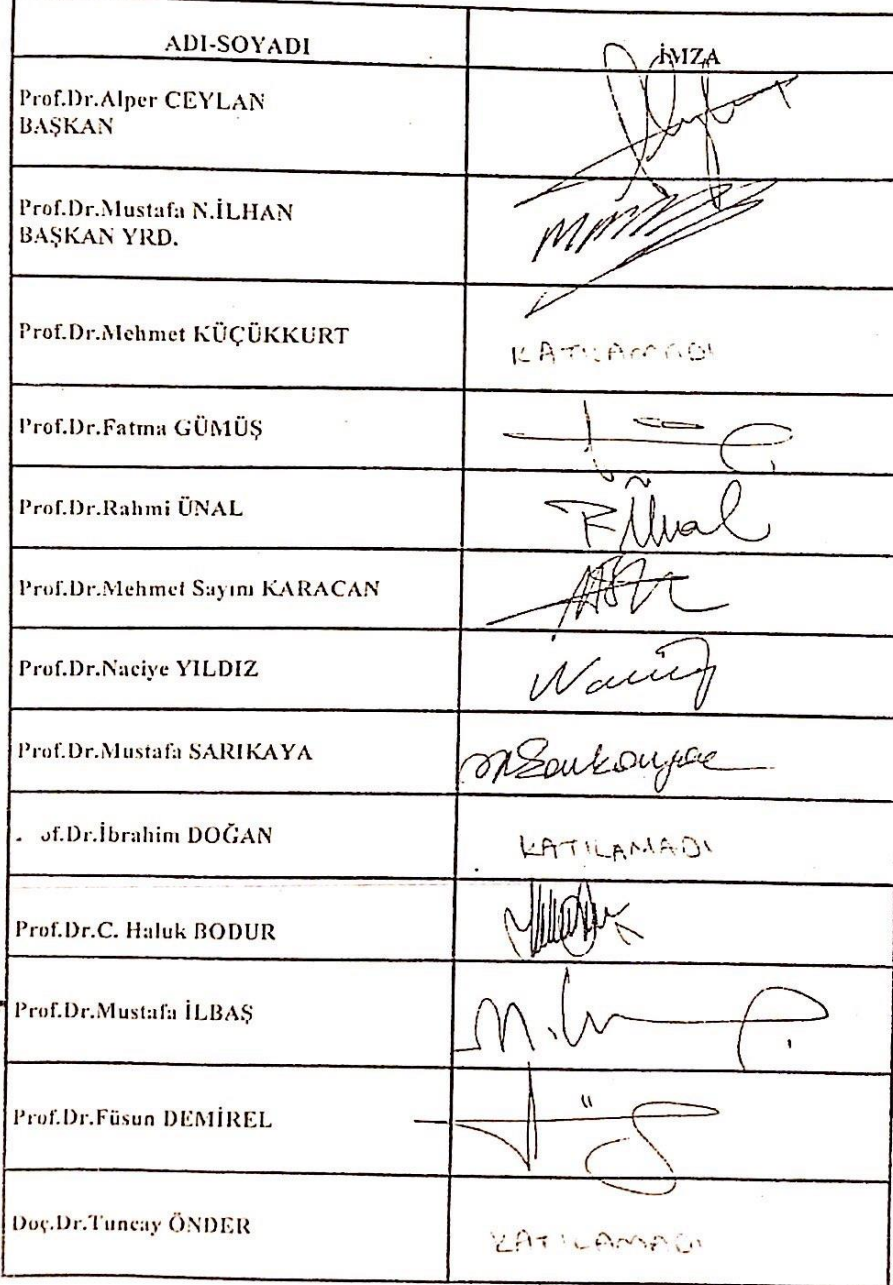 ADI-SOYADI İMZA
Prof.Dr.Alper CEYLAN
BAŞKAN
Prof.Dr.Mustafa N.İLHAN
BAŞKAN YRD.
Prof.Dr.Mehmet KÜÇÜKKURT KATILAMADI
Prof.Dr.Fatma GÜMÜŞ
Prof.Dr.Rahmi ÜNAL R Ünal
Prof.Dr.Mehmet Sayım KARACAN
Prof.Dr.Naciye YILDIZ
Prof.Dr.Mustafa SARIKAYA MSarıkaya
of.Dr.İbrahim DOĞAN KATILAMADI
Prof.Dr.C. Haluk BODUR
Prof.Dr.Mustafa İLBAŞ
Prof.Dr.Füsun DEMİREL
Doç.Dr.Tuncay ÖNDER KATILAMADI